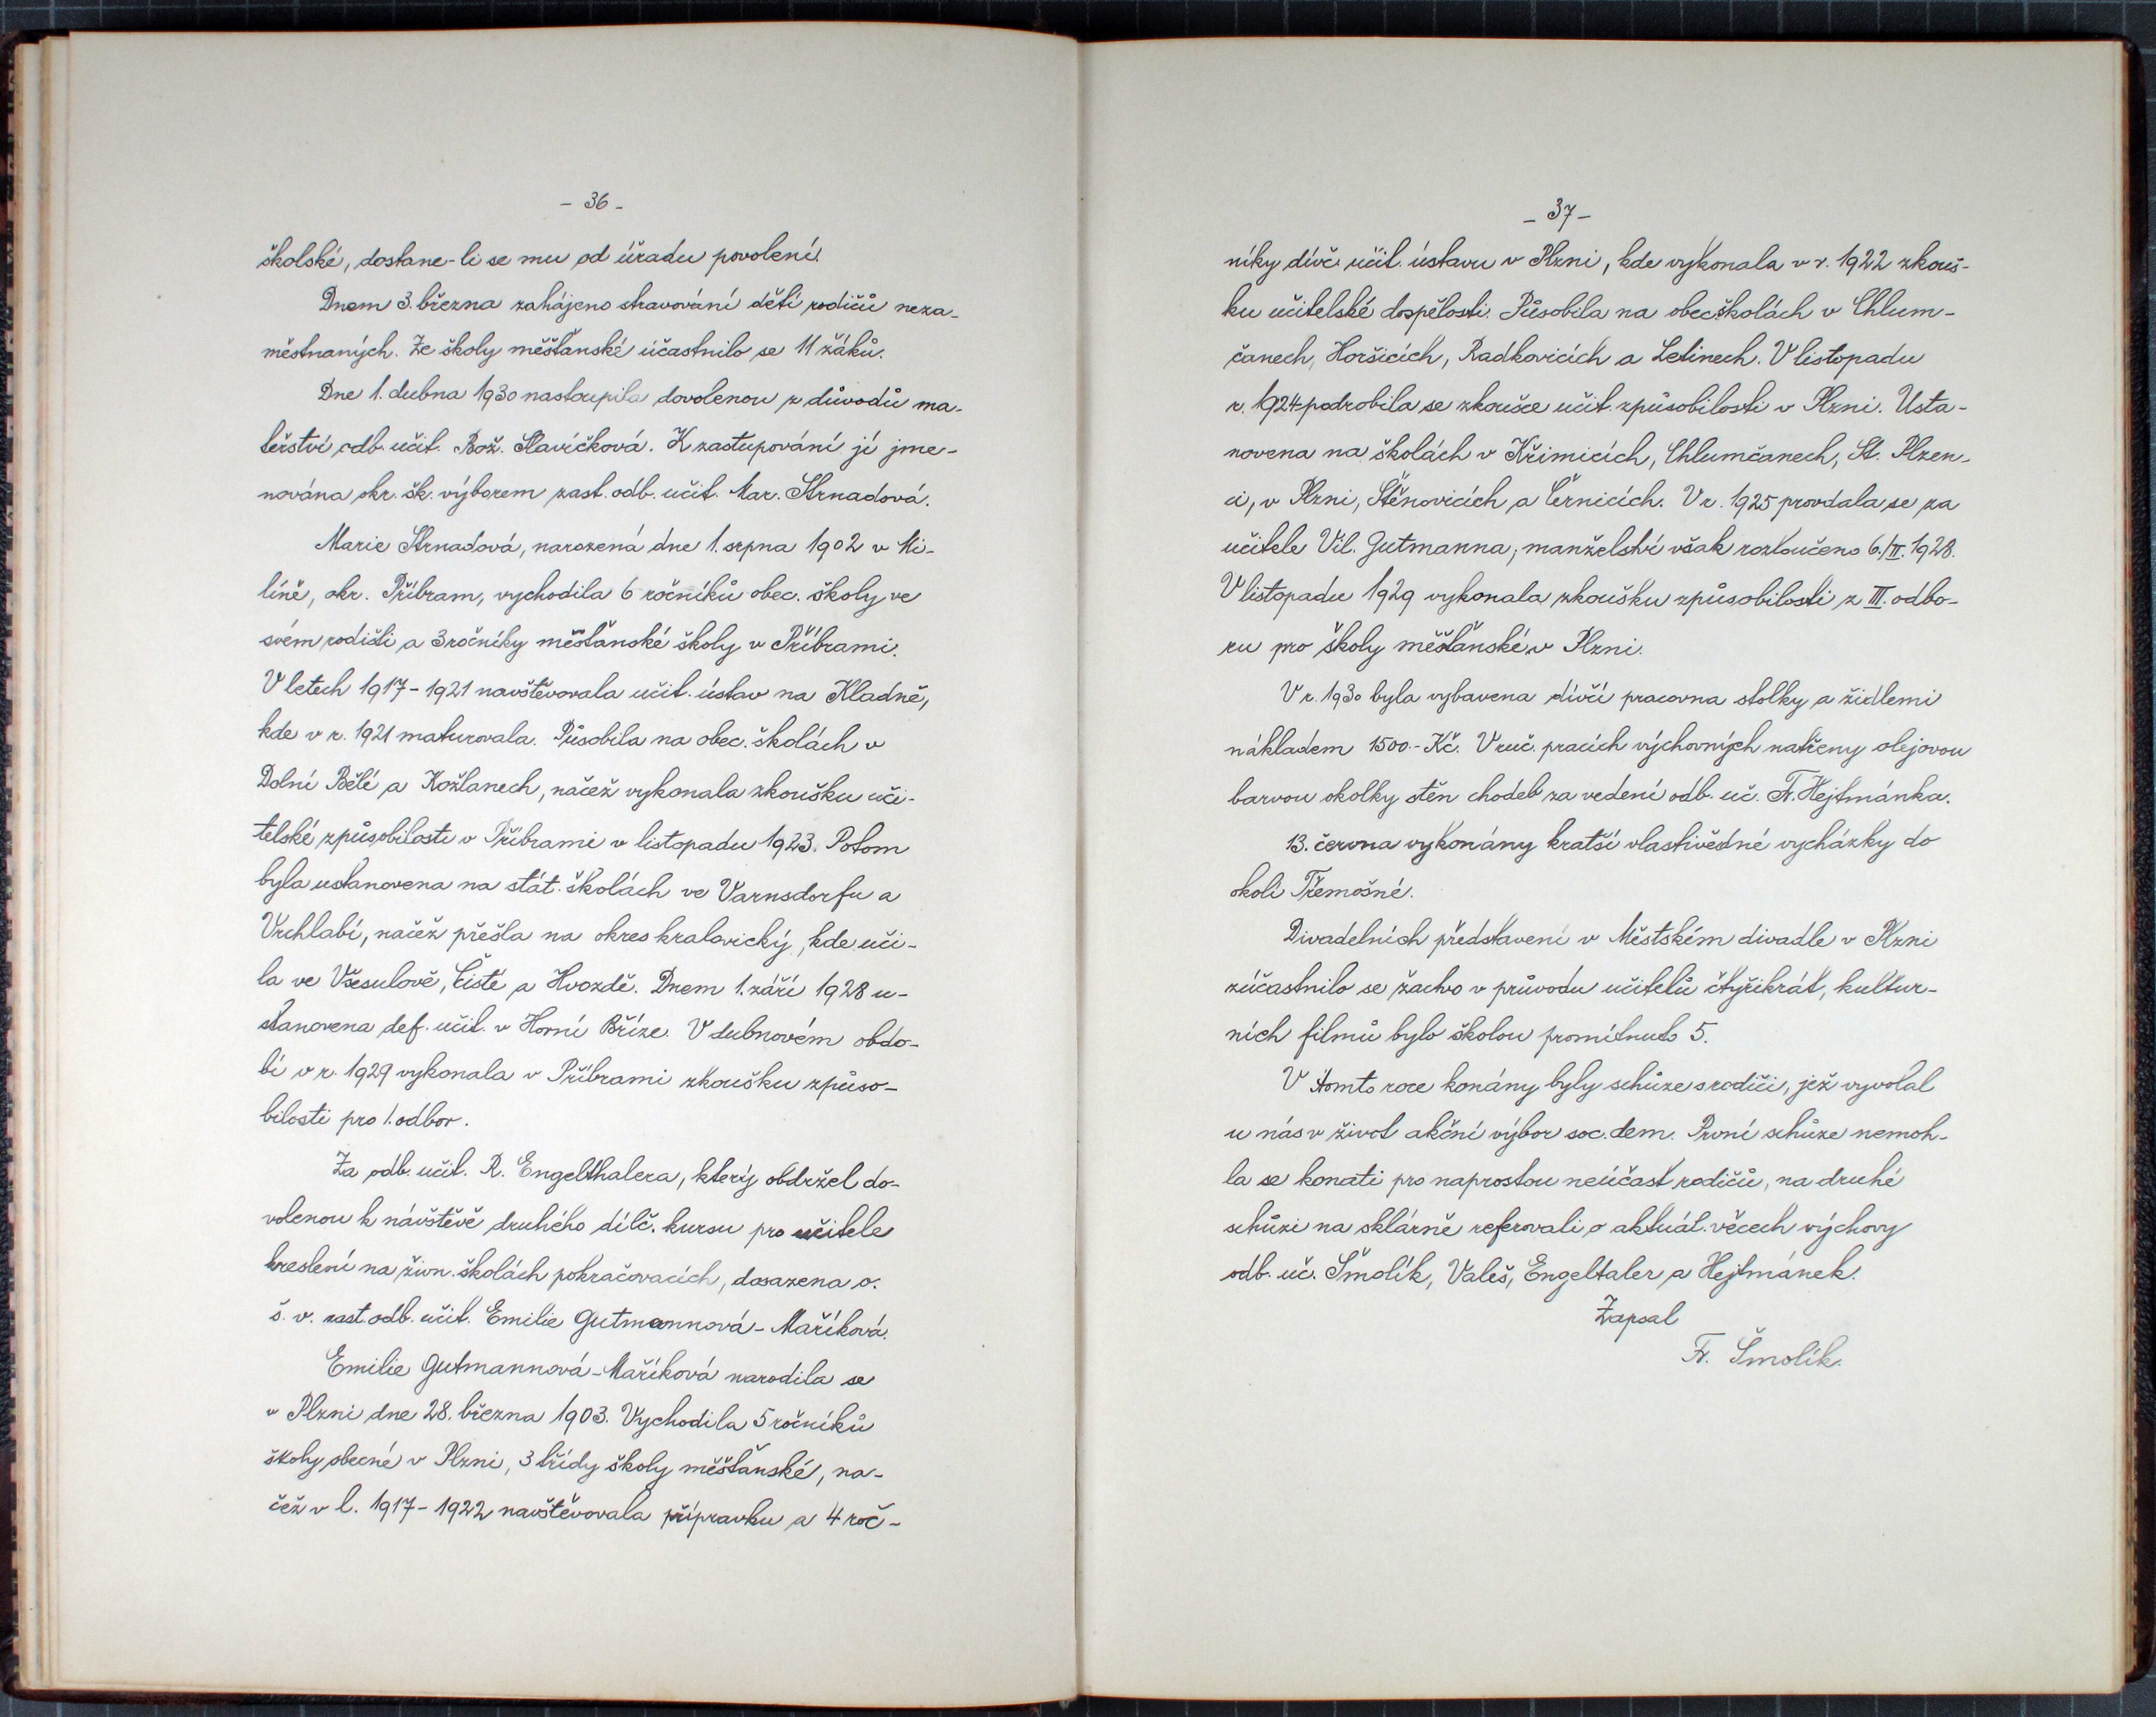 - 36 -
školské, dostane-li se mu od úřadu povolení.
Dnem 3. března zahájeno stravování dětí rodičů neza-
městnaných. Ze školy měšťanské účastnilo se 11 žáků.
Dne 1. dubna 1930 nastoupila dovolenou z důvodů ma-
teřství odb. učit. Bož. Slavíčková. K zastupování jí jme-
nována okr. šk. výborem zast. odb. učit. Mar. Strnadová.
Marie Strnadová, narozená dne 1. srpna 1902 v Mi-
líně, okr. Příbram, vychodila 6 ročníků obec. školy ve
svém rodišti a 3 ročníky měšťanské školy v Příbrami.
V letech 1917 - 1921 navštěvovala učit. ústav na Kladně,
kde v r. 1921 maturovala. Působila na obec. školách v
Dolní Bělé a Kožlanech, načež vykonala zkoušku uči-
telské způsobilosti v Příbrami v listopadu 1923. Potom
byla ustanovena na stát. školách ve Varnsdorfu a
Vrchlabí, načež přešla na okres kralovický, kde uči-
la ve Všesulově, Čisté a Hvozdě. Dnem 1. září 1928 u-
stanovena def. učit. v Horní Bříze. V dubnovém obdo-
bí v r. 1929 vykonala v Příbrami zkoušku způso-
bilosti pro 1. odbor.
Za odb. učit. R. Engelthalera, který obdržel do-
volenou k návštěvě druhého dílč. kursu pro učitele
kreslení na živn. školách pokračovacích, dosazena o.
š. v. zast. odb. učit. Emilie Gutmannová - Maříková.
Emilie Gutmannová - Maříková narodila se
v Plzni dne 28. března 1903. Vychodila 5 ročníků
školy obecné v Plzni, 3 třídy školy měšťanské, na-
čež v l. 1917 - 1922 navštěvovala přípravku a 4 roč-
- 37 -
níky dívč. učit. ústavu v Plzni, kde vykonala v r. 1922 zkouš-
ku učitelské dospělosti. Působila na obec. školách v Chlum-
čanech, Horšicích, Radkovicích a Letinech. V listopadu
r. 1924 podrobila se zkoušce učit. způsobilosti v Plzni. Usta-
novena na školách v Křimicích, Chlumčanech, St. Plzen-
ci, v Plzni, Štěnovicích a Černicích. V r. 1925 provdala se za
učitele Vil. Gutmanna; manželství však rozloučeno 6./II. 1928.
V listopadu 1929 vykonala zkoušku způsobilosti z III. odbo-
ru pro školy měšťanské v Plzni.
V r. 1930 byla vybavena dívčí pracovna stolky a židlemi
nákladem 1500.- Kč. V ruč. pracích výchovných natřeny olejovou
barvou okolky stěn chodeb za vedení odb. uč. Fr. Hejtmánka.
13. června vykonány kratší vlastivědné vycházky do
okolí Třemošné.
Divadelních představení v Městském divadle v Plzni
zúčastnilo se žactvo v průvodu učitelů čtyřikrát, kultur-
ních filmů bylo školou promítnuto 5.
V tomto roce konány byly schůze s rodiči, jež vyvolal
u nás v život akční výbor soc. dem. První schůze nemoh-
la se konati pro naprostou neúčast rodičů, na druhé
schůzi na sklárně referovali o aktuál. věcech výchovy
odb. uč. Šmolík, Valeš, Engeltaler a Hejtmánek.
Zapsal
Fr. Šmolík.